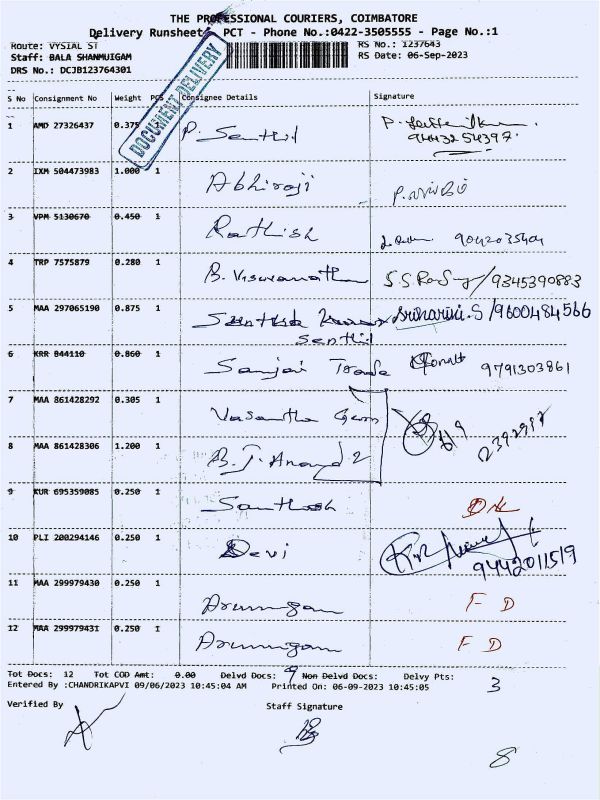 THE PROFESSIONAL COURIERS, COIMBATORE
Delivery Runsheet PCT - Phone No.:0422-3505555 - Page No.:1
Route: VYSIAL ST
RS No.: 1237643
Staff: BALA SHANMUIGAM
RS Date: 06-Sep-2023
DRS No.: DCJB123764301
DOCUMENT DELIVERY
S No Consignment No Weight PCS Consignee Details Signature
1 AMD 27326437 0.375 1 P. Senthil P. 9443254397.
2 IXM 504473983 1.000 1 Abhiraji
3 VPM 5130670 0.450 1 Rathish 9042035404
4 TRP 7575879 0.280 1 B. Viswanathan 9345390883
5 MAA 297065190 0.875 1 Senthil Sriharini.S/9600484566
6 KRR 844110 0.860 1 Sanjai Trade 9791303861
7 MAA 861428292 0.305 1 Vasantha Gem
8 MAA 861428306 1.200 1 B.J. Anand 2
9 KUR 695359085 0.250 1 Santhosh DL
10 PLI 200294146 0.250 1 Devi 9442011519
11 MAA 299979430 0.250 1 Arumugam F D
12 MAA 299979431 0.250 1 Arumugam F D
Tot Docs: 12 Tot COD Amt: 0.00 Delvd Docs: 9 Non Delvd Docs: 3 Delvy Pts: 8
Entered By :CHANDRIKAPVI 09/06/2023 10:45:04 AM Printed On: 06-09-2023 10:45:05
Verified By Staff Signature